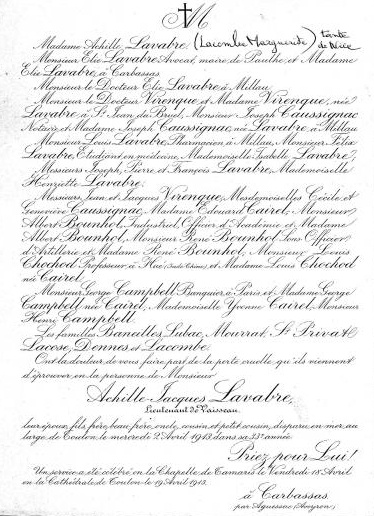 M
Madame Achille Lavabre, (Lacombe Marguerite) tante de Nice
Monsieur Elie Lavabre Avocat, maire de Paulhe, et Madame
Elie Lavabre, à Carbassas
Monsieur le Docteur Elie Lavabre à Millau,
Monsieur le Docteur Virenque et Madame Virenque, née
Lavabre à St Jean du Bruel, Monsieur Joseph Caussignac
Notaire et Madame Joseph Caussignac, née Lavabre à Millau
Monsieur Louis Lavabre, Pharmacien à Millau, Monsieur Félix
Lavabre, Etudiant en médecine, Mademoiselle Isabelle Lavabre,
Messieurs Joseph, Pierre et François Lavabre, Mademoiselle
Henriette Lavabre,
Messieurs Jean et Jacques Virenque, Mesdemoiselles Cécile et
Geneviève Caussignac, Madame Edouard Cairel, Monsieur
Albert Bounhol, Industriel, Officier d'Académie et Madame
Albert Bounhol, Monsieur René Bounhol Sous Officier
d'Artillerie et Madame René Bounhol, Monsieur Louis
Chochod Professeur à Hué, (Indo-Chine) et Madame Louis Chochod
née Cairel,
Monsieur George Campbell Banquier, à Paris et Madame George
Campbell née Cairel, Mademoiselle Yvonne Cairel, Monsieur
Henri Campbell,
Les familles Bancilles, Labac, Mourrat, St Privat
Lacose, Dennes et Lacombe
Ont la douleur de vous faire part de la perte cruelle qu'ils viennent
d'éprouver en la personne de Monsieur
Achille-Jacques Lavabre,
Lieutenant de Vaisseau,
leur époux, fils, frère, beau-frère, oncle, cousin et petit cousin, disparu en mer, au
large de Toulon, le mercredi 2 Avril 1913, dans sa 33e année
Priez pour Lui!
Un service a été célébré en la Chapelle de Tamaris le Vendredi 18 Avril
en la Cathédrale de Toulon le 19 Avril 1913.
à Carbassas
par Aguessac (Aveyron)